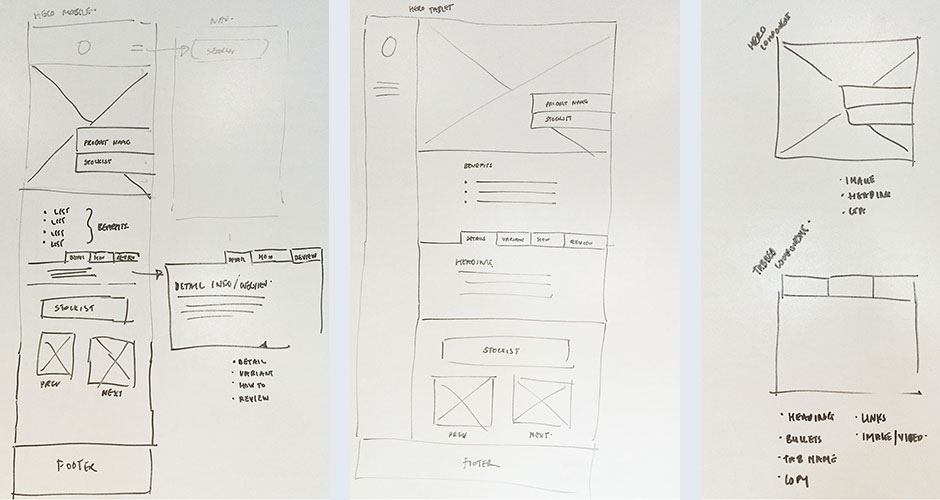 HERO MOBILE
NAV
SEARCH
PRODUCT NAME
STOCKIST
LIST
LIST
LIST
LIST
BENEFITS
HOW
REVIEW
DETAIL
HOW
REVIEW
DETAIL INFO/
STOCKIST
PREV
NEXT
DETAIL
VARIANT
HOW TO
REVIEW
FOOTER
HERO TABLET
PRODUCT NAME
STOCKIST
BENEFITS
DETAILS
VARIANT
HOW
REVIEW
HEADING
STOCKIST
PREV
NEXT
FOOTER
HERO
COMPONENT
IMAGE
HEADING
TABBED
COMPONENT
HEADINGS
BULLETS
TAB NAME
COPY
LINKS
IMAGE/VIDEO